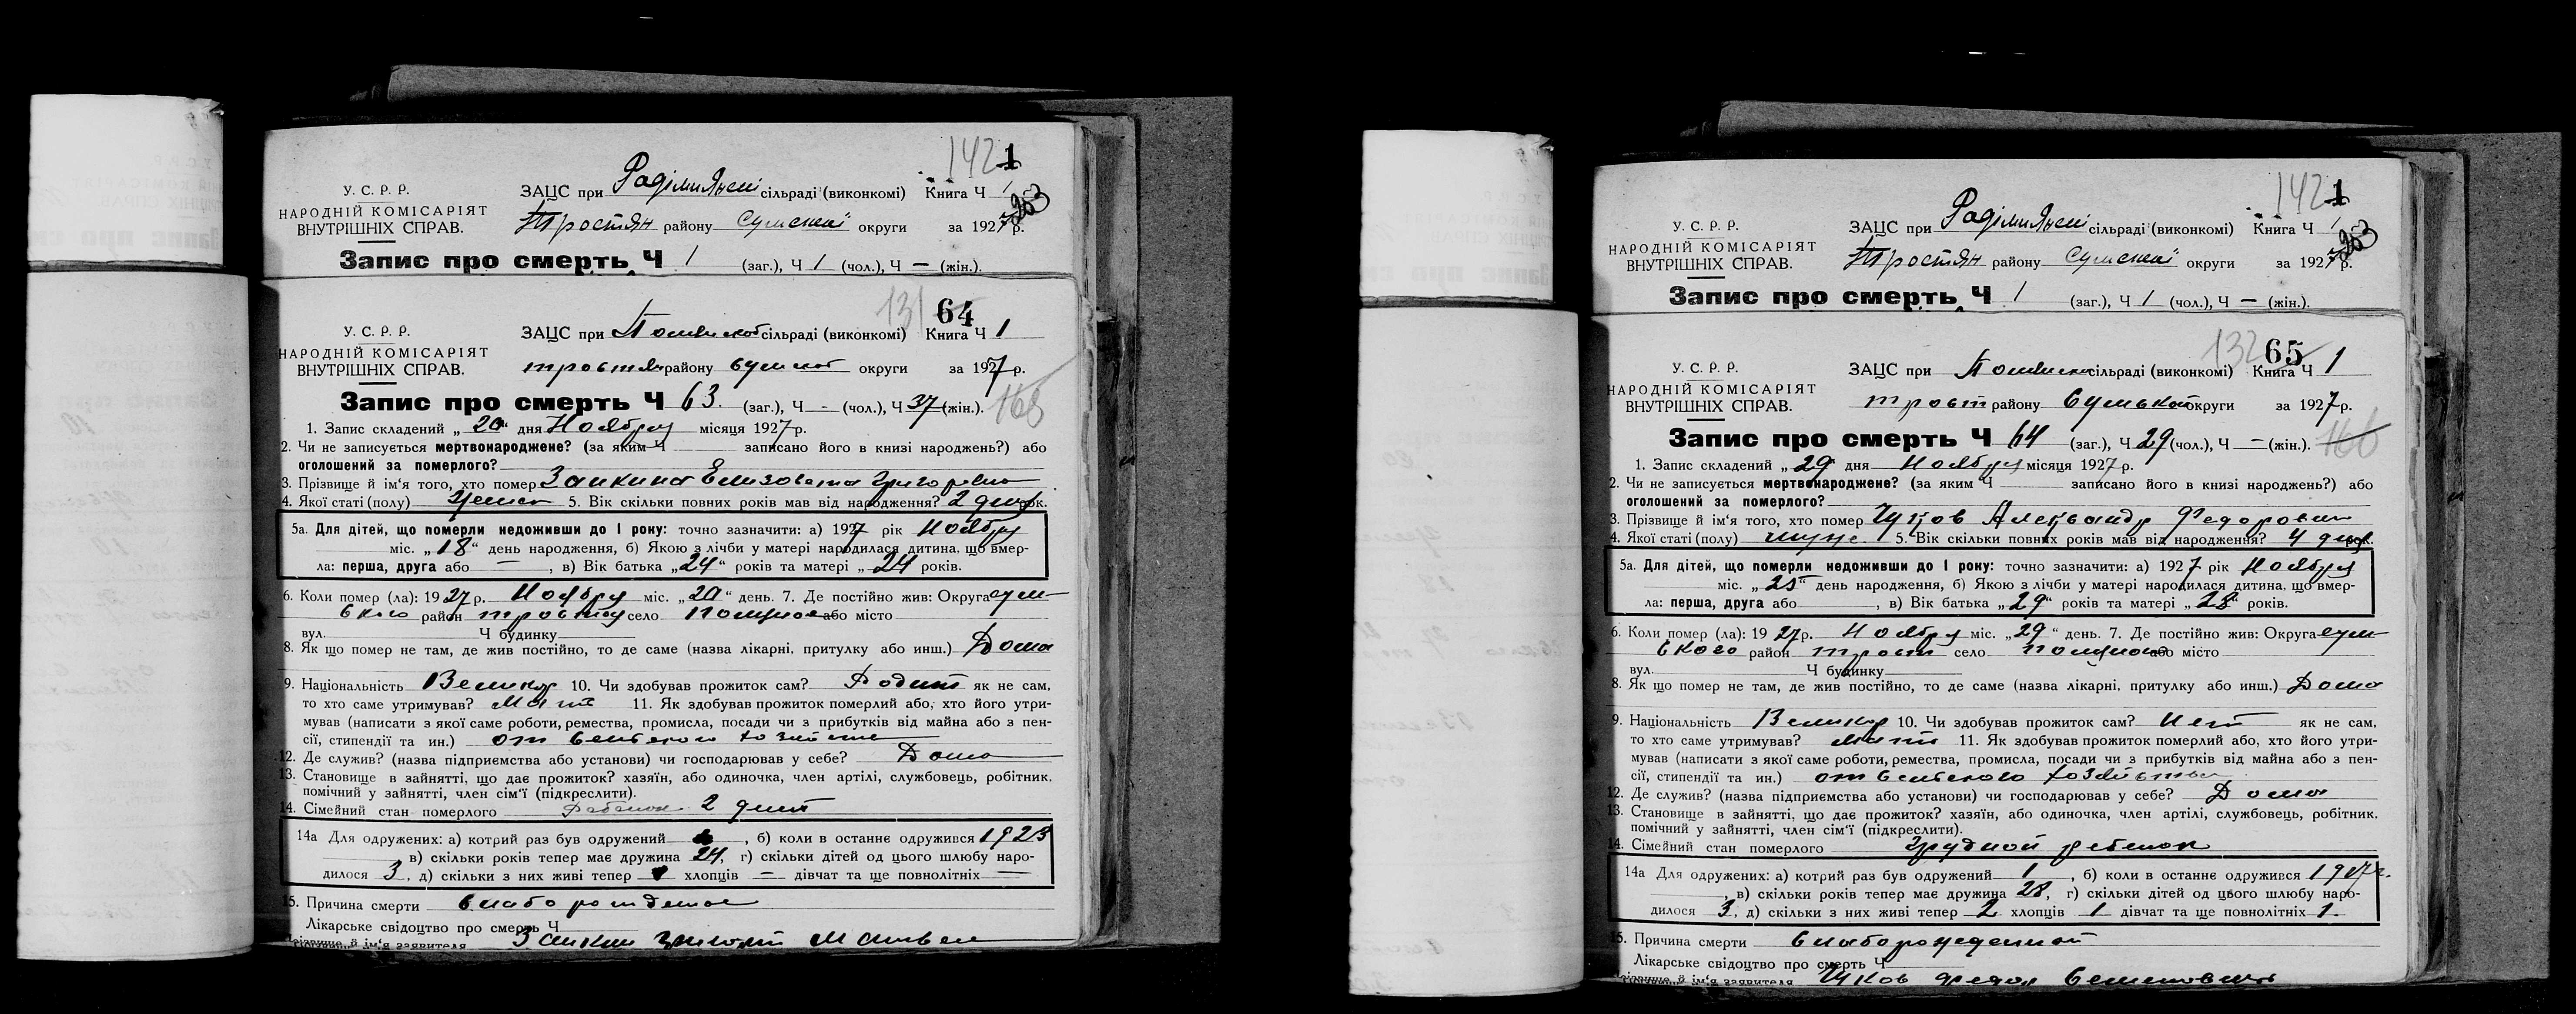 142 1
У. С. Р. Р.
НАРОДНІЙ КОМІСАРІЯТ
ВНУТРІШНІХ СПРАВ.
ЗАЦС при сільраді (виконкомі) Книга Ч 1
Тростян району Сумської округи за 1927 р.
Запис про смерть Ч 1 (заг.), Ч 1 (чол.), Ч — (жін.).
131 64
У. С. Р. Р.
НАРОДНІЙ КОМІСАРІЯТ
ВНУТРІШНІХ СПРАВ.
ЗАЦС при сільраді (виконкомі) Книга Ч 1
тростян району сумской округи за 1927 р.
Запис про смерть Ч 63. (заг.), Ч - (чол.), Ч 37 (жін.).
1. Запис складений „20“ дня Ноября місяця 1927 р.
2. Чи не записується мертвонароджене? (за яким Ч записано його в книзі народжень?) або
оголошений за померлого?
3. Прізвище й ім'я того, хто помер Заикина Елизовета Григоревна
4. Якої статі (полу) женск 5. Вік скільки повних років мав від народження? 2 дня рок.
5а. Для дітей, що померли недоживши до 1 року: точно зазначити: а) 1927 рік Ноября
міс. „18“ день народження, б) Якою з лічби у матері народилася дитина, що вмер-
ла: перша, друга або —, в) Вік батька „24“ років та матері „24 років.
6. Коли помер (ла): 1927 р. Ноября міс. „20“ день. 7. Де постійно жив: Округа сум-
ского район тростян село або місто
вул. Ч будинку
8. Як що помер не там, де жив постійно, то де саме (назва лікарні, притулку або инш.) Дома
9. Національність Великор 10. Чи здобував прожиток сам? як не сам,
то хто саме утримував? Мать 11. Як здобував прожиток померлий або, хто його утри-
мував (написати з якої саме роботи, ремества, промисла, посади чи з прибутків від майна або з пен-
сії, стипендії та ин.) от сельского
12. Де служив? (назва підприємства або установи) чи господарював у себе? Дома
13. Становище в зайнятті, що дає прожиток? хазяїн, або одиночка, член артілі, службовець, робітник,
помічний у зайнятті, член сім'ї (підкреслити).
14. Сімейний стан померлого Ребенок 2 дней
14а Для одружених: а) котрий раз був одружений , б) коли в останнє одружився 1923
в) скільки років тепер має дружина 24, г) скільки дітей од цього шлюбу наро-
дилося 3, д) скільки з них живі тепер хлопців — дівчат та ще повнолітніх —
15. Причина смерти слаборожденое
Лікарське свідоцтво про смерть Ч
Прізвище й ім'я заявителя Заикин
142 1
У. С. Р. Р.
НАРОДНІЙ КОМІСАРІЯТ
ВНУТРІШНІХ СПРАВ.
ЗАЦС при сільраді (виконкомі) Книга Ч 1
Тростян району Сумської округи за 1927 р.
Запис про смерть Ч 1 (заг.), Ч 1 (чол.), Ч — (жін.).
132 65
У. С. Р. Р.
НАРОДНІЙ КОМІСАРІЯТ
ВНУТРІШНІХ СПРАВ.
ЗАЦС при сільраді (виконкомі) Книга Ч 1
трост району Сумськой округи за 1927 р.
Запис про смерть Ч 64 (заг.), Ч 29 (чол.), Ч — (жін.). 166
1. Запис складений „29“ дня Ноября місяця 1927 р.
2. Чи не записується мертвонароджене? (за яким Ч записано його в книзі народжень?) або
оголошений за померлого?
3. Прізвище й ім'я того, хто помер Александр Федорович
4. Якої статі (полу) муж. 5. Вік скільки повних років мав від народження? 4 дня рок.
5а. Для дітей, що померли недоживши до 1 року: точно зазначити: а) 1927 рік Ноября
міс. „25“ день народження, б) Якою з лічби у матері народилася дитина, що вмер-
ла: перша, друга або , в) Вік батька „29“ років та матері „28“ років.
6. Коли помер (ла): 1927 р. Ноября міс. „29“ день. 7. Де постійно жив: Округа сум-
ского район трост село або місто
вул. Ч будинку
8. Як що помер не там, де жив постійно, то де саме (назва лікарні, притулку або инш.) Дома
9. Національність Великор 10. Чи здобував прожиток сам? Нет як не сам,
то хто саме утримував? Мать 11. Як здобував прожиток померлий або, хто його утри-
мував (написати з якої саме роботи, ремества, промисла, посади чи з прибутків від майна або з пен-
сії, стипендії та ин.) от селского хозяйства
12. Де служив? (назва підприємства або установи) чи господарював у себе? Дома
13. Становище в зайнятті, що дає прожиток? хазяїн, або одиночка, член артілі, службовець, робітник,
помічний у зайнятті, член сім'ї (підкреслити).
14. Сімейний стан померлого Грудной ребенок
14а Для одружених: а) котрий раз був одружений 1, б) коли в останнє одружився
, в) скільки років тепер має дружина 28, г) скільки дітей од цього шлюбу наро-
дилося 3, д) скільки з них живі тепер 2 хлопців 1 дівчат та ще повнолітніх 1
15. Причина смерти слаборожденной
Лікарське свідоцтво про смерть Ч
Прізвище й ім'я заявителя Семенович